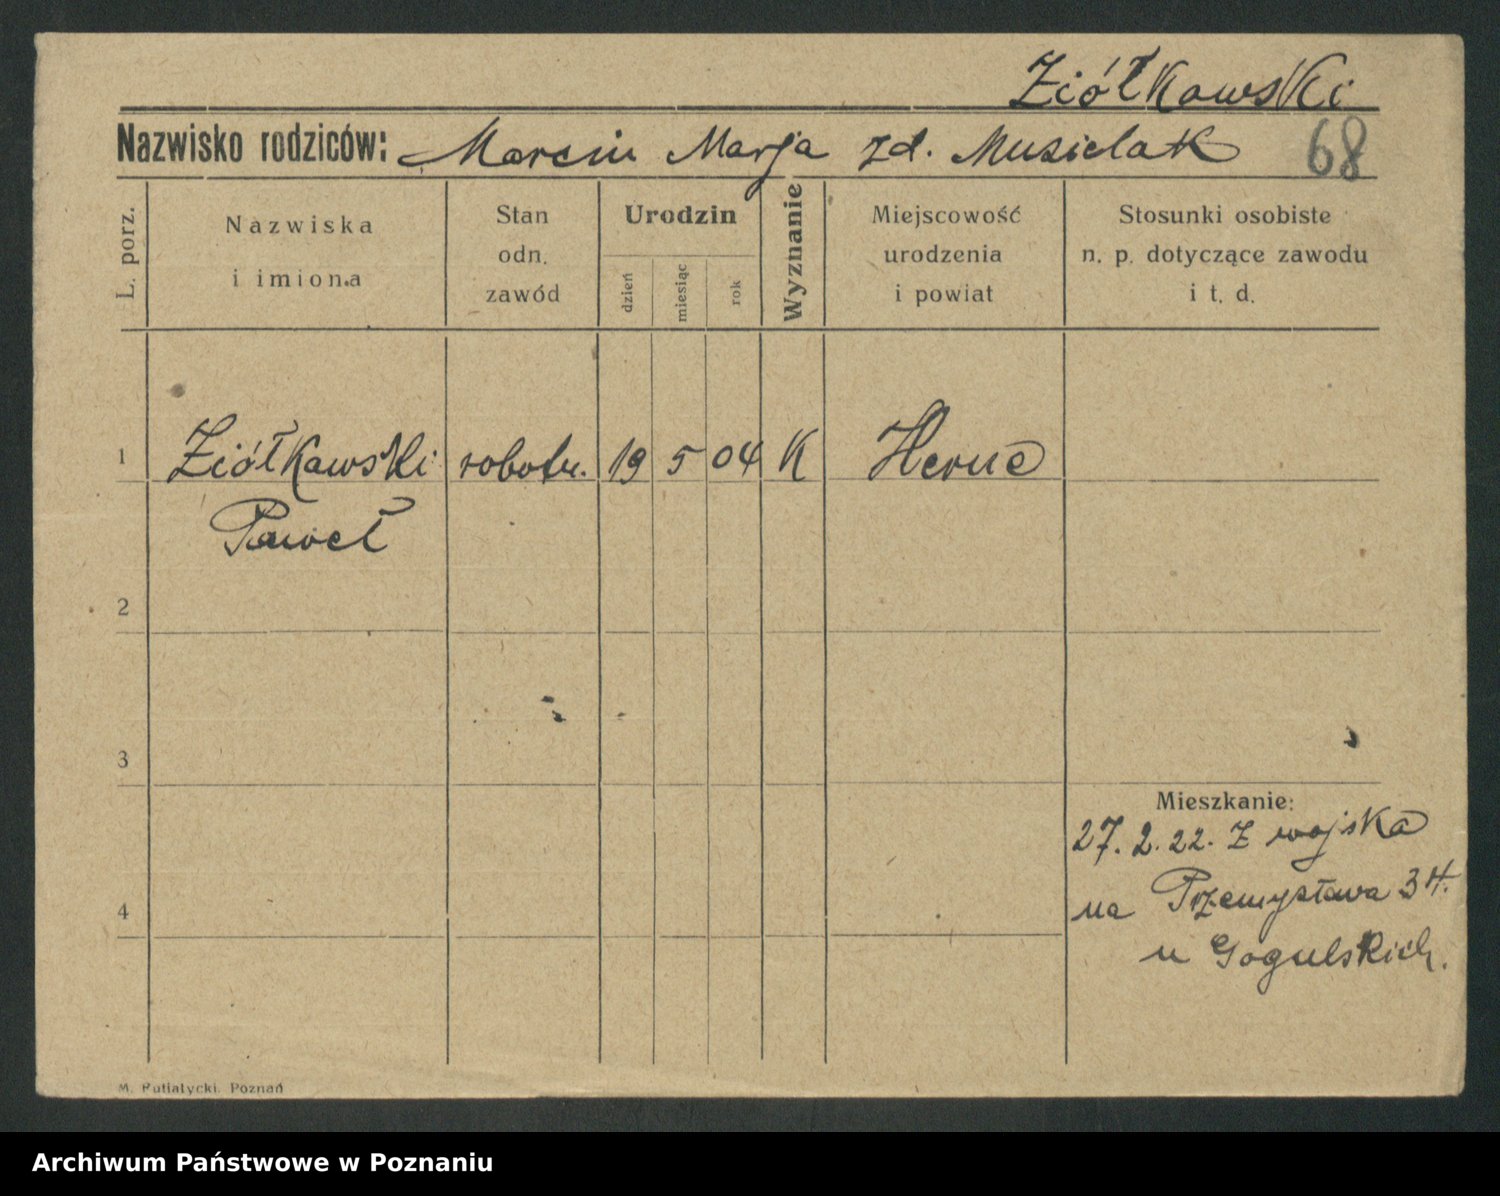 Ziółkowski
Nazwisko rodziców: Marcin Marja zd. Musielak 68
L. porz.
Nazwiska
i imiona
Stan
odn.
zawód
Urodzin
dzień
miesiąc
rok
Wyznanie
Miejscowość
urodzenia
i powiat
Stosunki osobiste
n. p. dotyczące zawodu
i t. d.
1 Ziółkowski robotn. 19 5 04 K Herne
Paweł
2
3
Mieszkanie:
27. 2. 22. Z wojska
na Przemysława 34.
4
u Gogulskich.
M. Putiatycki. Poznań
Archiwum Państwowe w Poznaniu